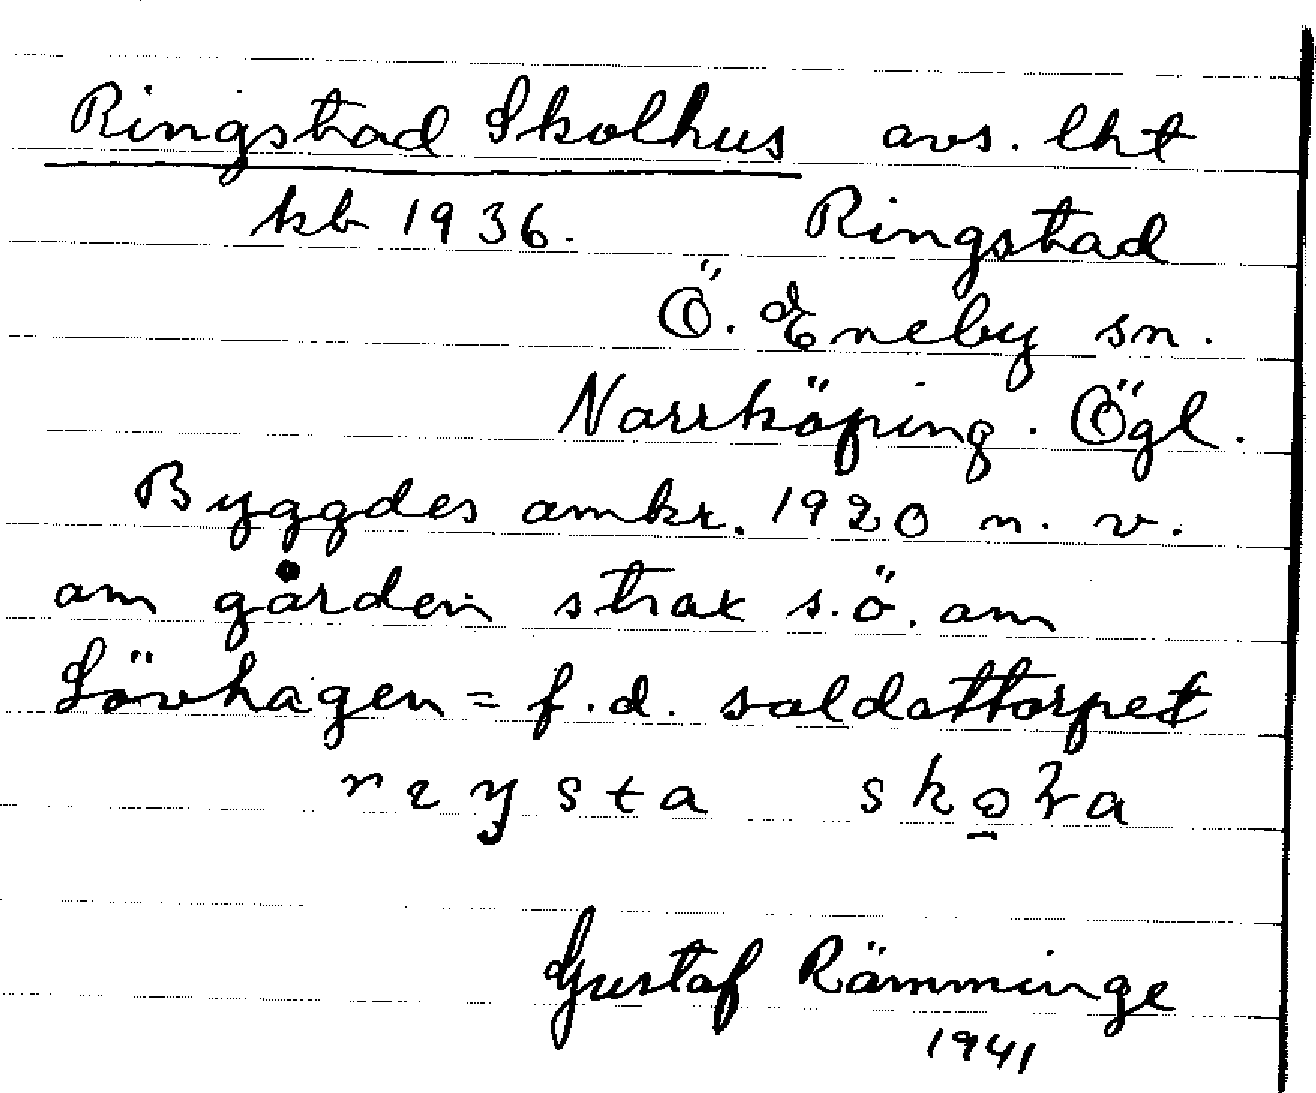 Ringstad Skolhus avs. lht
kb 1936. Ringstad
Ö. Eneby sn.
Norrköping. Ögl.
Byggdes omkr. 1920 n. v.
om gården strax s.ö. om
Lövhagen = f.d. soldattorpet
Gustaf Rämminge
1941